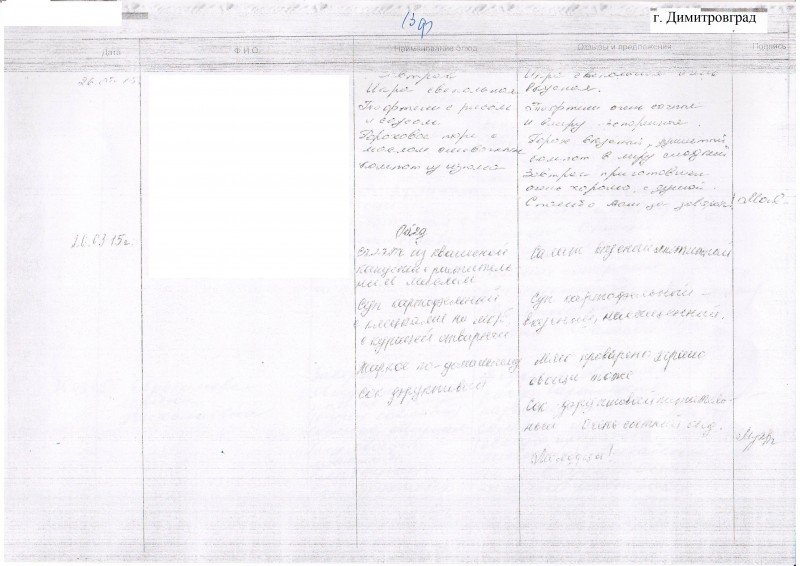 г. Димитровград
13
Дата Ф.И.О. Наименование блюд Отзывы и предложения Подпись
26.03.15г. Завтрак
Икра свекольная Икра свекольная очень
вкусная.
Тефтели с рисом Тефтели очень сочные
и соусом и в меру
Гороховое пюре с Горох вкусный,
маслом сливочным компот в меру сладкий
Компот из изюма Завтрак приготовлен
очень хорошо, с душой.
Спасибо вам за завтрак!
26.03.15г. Обед
Салат из квашеной Салат вкусный
капусты с раститель-
ным маслом
Суп картофельный Суп картофельный —
с клецками на м/к вкусный, насыщенный.
с курицей отварной
Жаркое по-домашнему Мясо проварено хорошо
овощи тоже
Сок фруктовый Сок фруктовый
Очень сытный обед.
Молодцы!